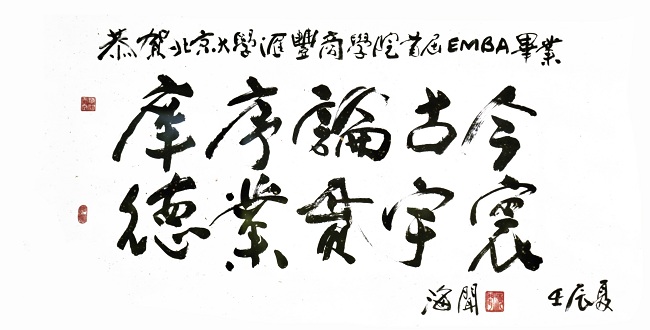 恭賀北京大學滙豐商學院首屆EMBA畢業
庠序論古今
德業貫宇寰
海聞 壬辰夏